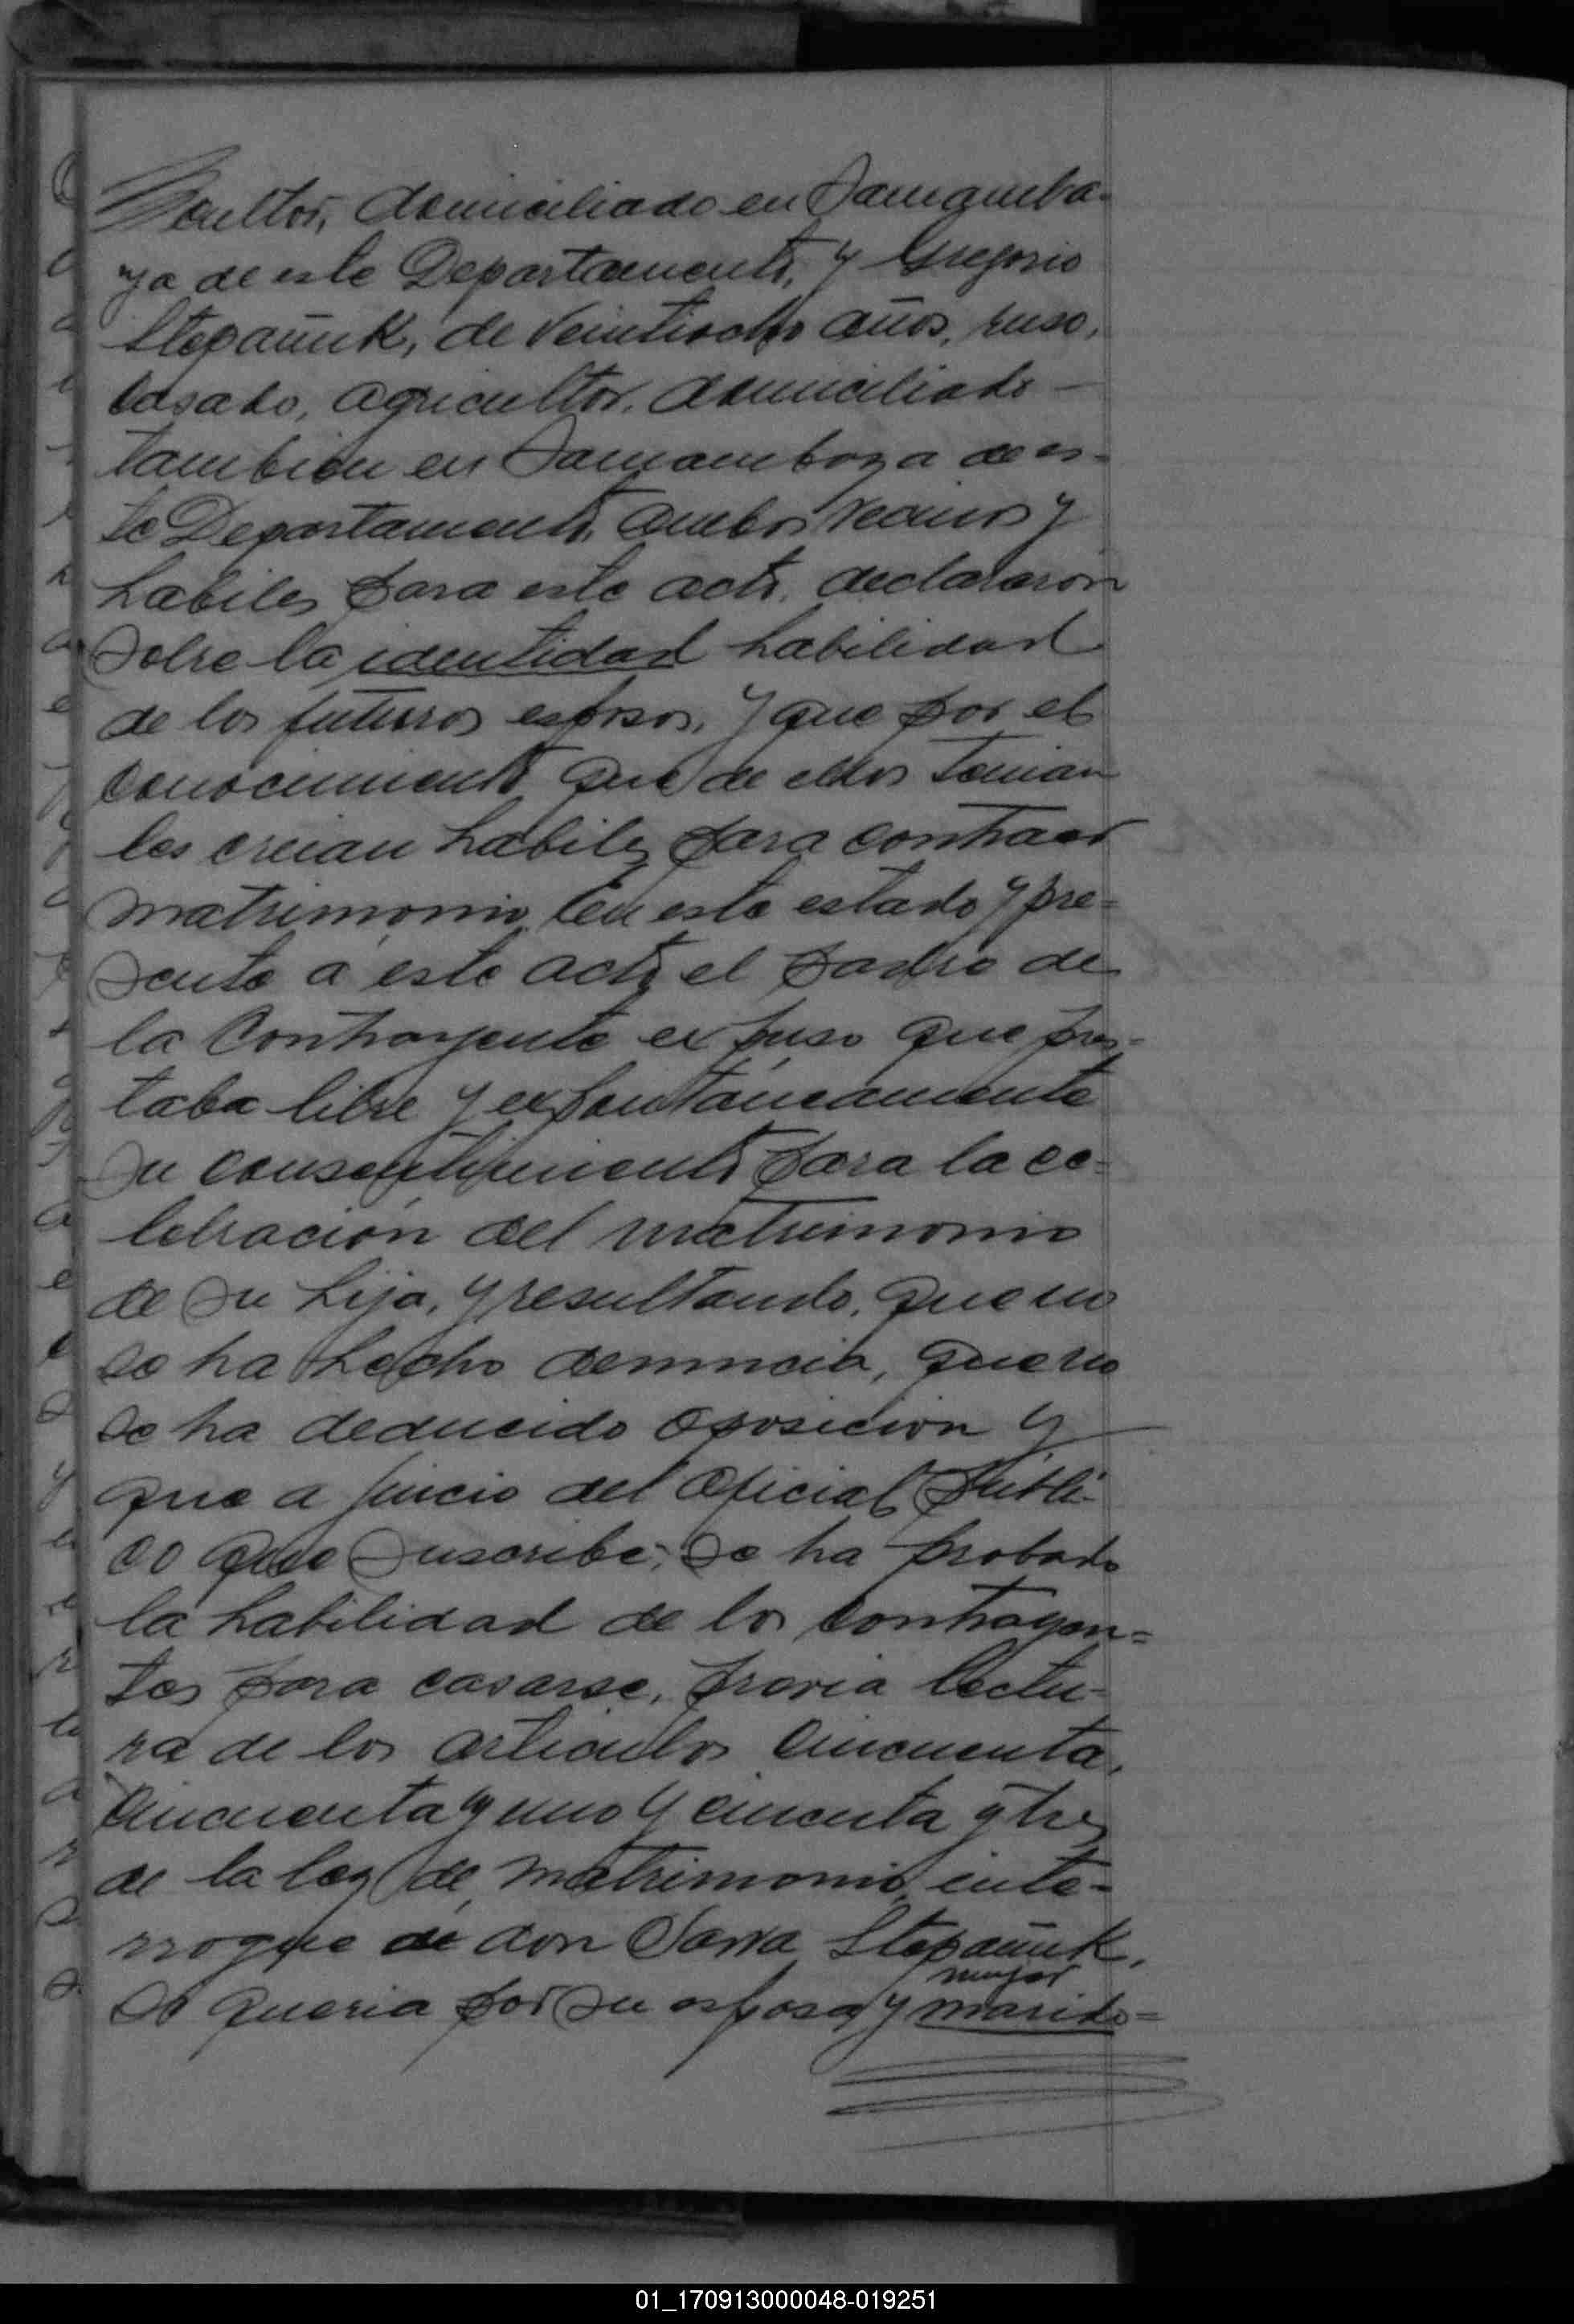 cultor, domiciliado en Samamba=
ya de este Departamento, y Gregorio
Stepañuk, de veintiocho años, ruso,
casado, agricultor, domiciliado —
tambien en Samambaya de es=
te Departamento, ambos vecinos y
habiles para este acto, declararon
sobre la identidad habilidad
de los futuros esposos, y que por el
conocimiento que de ellos tenian
les creian habiles para contraer
matrimonio. En este estado y pre=
sente a este acto el padre de
la contrayente expuso que pres=
taba libre y expontaneamente
su consentimiento para la ce=
lebracion del matrimonio
de su hija, y resultando, que no
se ha hecho denuncia, que no
se ha deducido oposicion y —
que a juicio del Oficial Publi-
co que suscribe, se ha probado
la habilidad de los contrayen=
tes para casarse, previa lectu=
ra de los articulos cincuenta,
cincuenta y uno y cincuenta y tres
de la ley de matrimonio, inte=
rrogue de don Stepañuk,
si queria por su esposa y marido=
mujer
01_170913000048-019251